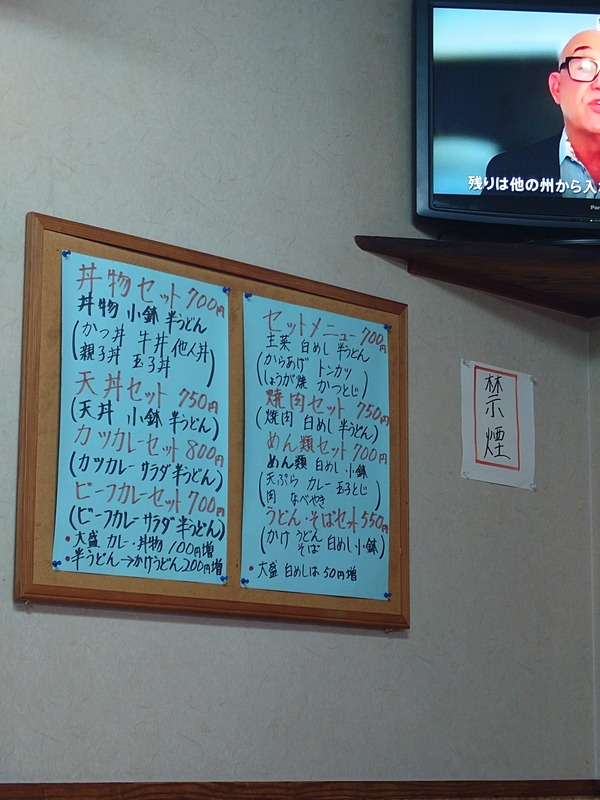 丼物セット 700円
丼物 小鉢 半うどん
(かつ丼 牛丼 他人丼
親子丼 玉子丼)
天丼セット 750円
(天丼 小鉢 半うどん)
カツカレーセット 800円
(カツカレー サラダ 半うどん)
ビーフカレーセット 700円
(ビーフカレー サラダ 半うどん)
・大盛 カレー・丼物 100円増
・半うどん→かけうどん 200円増
セットメニュー 700円
主菜 白めし 半うどん
(からあげ トンカツ
しょうが焼 かつとじ)
焼肉セット 750円
(焼肉 白めし 半うどん)
めん類セット 700円
めん類 白めし 小鉢
(天ぷら カレー 玉子とじ
肉 なべやき)
うどん・そばセット 550円
(かけ うどん
そば 白めし 小鉢)
・大盛 白めしは 50円増
禁煙
残りは他の州から入